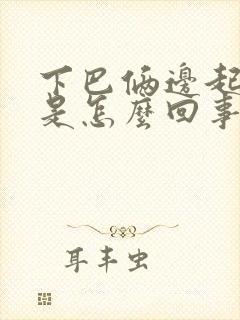 下巴俩邊起
是怎麼回事
耳丰虫